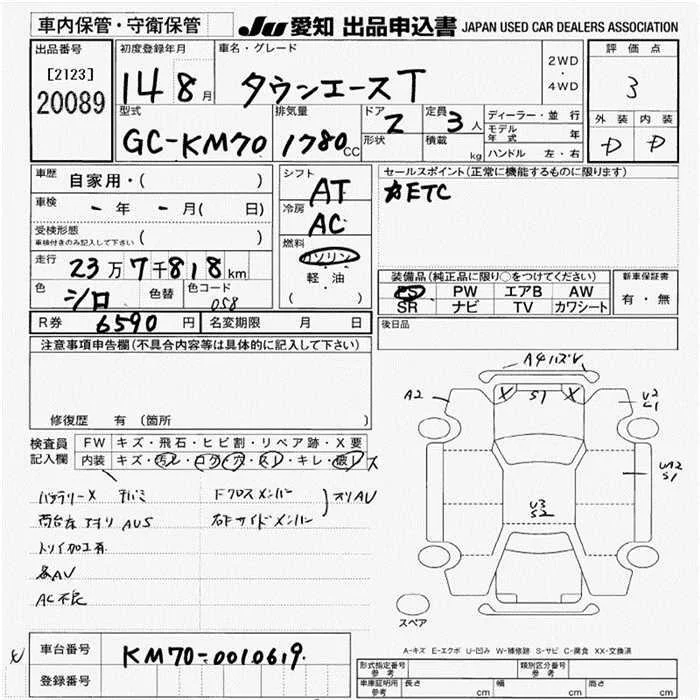 車内保管・守衛保管
JU 愛知 出品申込書 JAPAN USED CAR DEALERS ASSOCIATION
出品番号
[2123]
20089
初度登録年月
14 8月
車名・グレード
タウンエースT
2WD
・
4WD
評価点
3
外装 内装
D D
型式
GC-KM70
排気量
1780cc
ドア
2
形状
定員
3人
積載
kg
ディーラー・並行
モデル年式 年
ハンドル 左・右
車歴 自家用・( )
車検 - 年 - 月( 日)
受検形態
車検付きのみ記入して下さい ( )
走行 23万7千818km
色 シロ 色替 色コード 058
R券 6590円 名変期限 月 日
シフト
AT
冷房
AC
燃料
ガソリン
軽・油
( )
セールスポイント(正常に機能するものに限ります)
★ETC
装備品(純正品に限り○をつけてください)
PS PW エアB AW
SR ナビ TV カワシート
新車保証書
有・無
後日品
注意事項申告欄(不具合内容等は具体的に記入して下さい)
修復歴 有 (箇所 )
検査員
記入欄
FW キズ・飛石・ヒビ割・リペア跡・X要
内装 キズ・汚レ・コゲ・穴・スレ・キレ・破レ
バッテリーX
荷台左アオリ AUS
トリイ加工有
各AU
AC不良
Fクロスメンバー
右Fサイドメンバー
A4
A2
X S1 X
U2
U3
S2
UA2
S1
スペア
A-キズ E-エクボ U-凹み W-補修跡 S-サビ C-腐食 XX-交換済
車台番号 KM70-0010619
登録番号
形式指定番号
参考
類別区分番号
参考
車庫証明用
参考
長さ cm 幅 cm 高さ cm